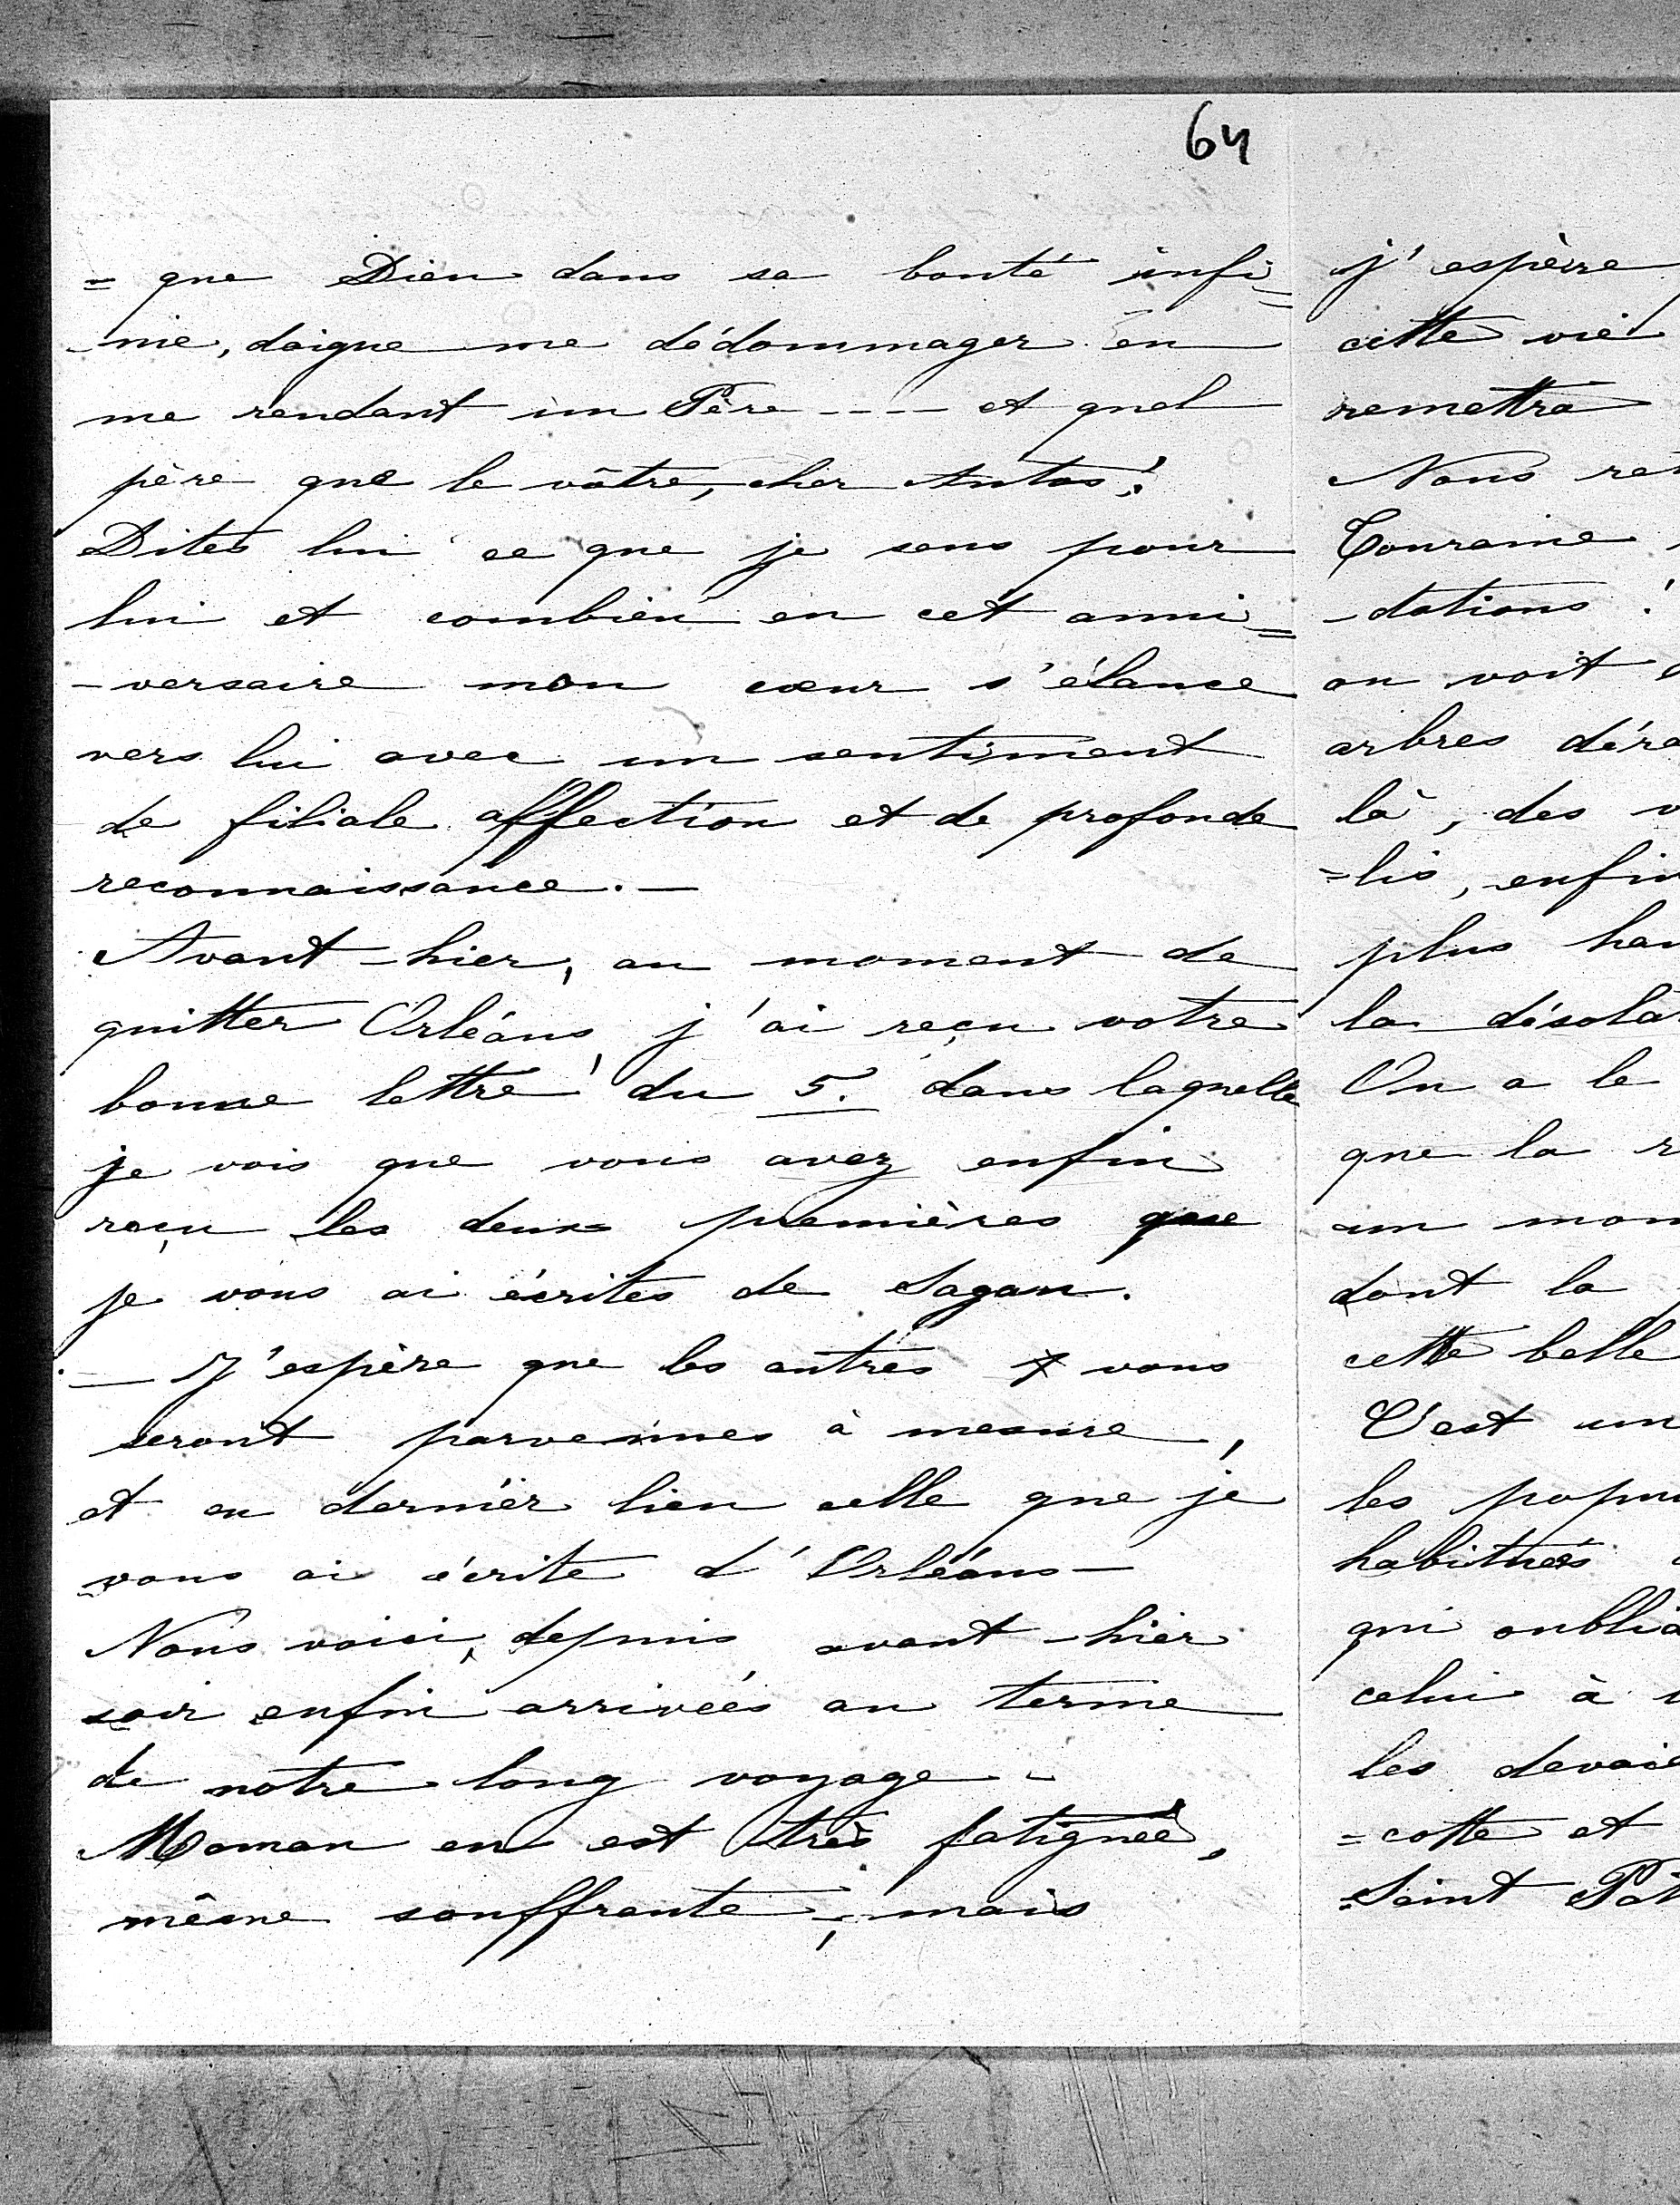 64
= que Dieu dans sa bonté infi=
-nie, daigne me dédommager en
me rendant un Père ---- et quel
père que le vôtre, cher Antos!
Dites lui ce que je sens pour
lui et combien en cet anni=
-versaire mon cœur s'élance
vers lui avec un sentiment
de filiale affection et de profonde
reconnaissance. —
Avant-hier, au moment de
quitter Orléans, j'ai reçu votre
bonne lettre du 5. dans laquelle
je vois que vous avez enfin
reçu les deux premières que
je vous ai écrites de Sagan.
— J'espère que les autres vous
seront parvenues à mesure,
et en dernier lieu celle que je
vous ai écrite d'Orléans —
Nous voici, depuis avant-hier
soir enfin arrivées au terme
de notre long voyage.
Maman en est très fatiguée,
même souffrante; mais
j'espère
cette vie
remettra
Nous
Touraine
-dations!
on voit
arbres
là, des
=lis, enfin
plus
la
On a le
que la
un
dont la
cette belle
C'est un
les
habitués
qui
celui à
les
=cotte et
Saint